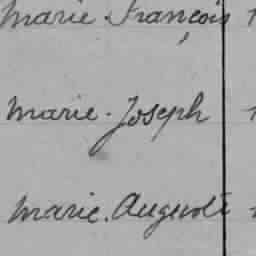 Marie François
Marie. Joseph
Marie. August